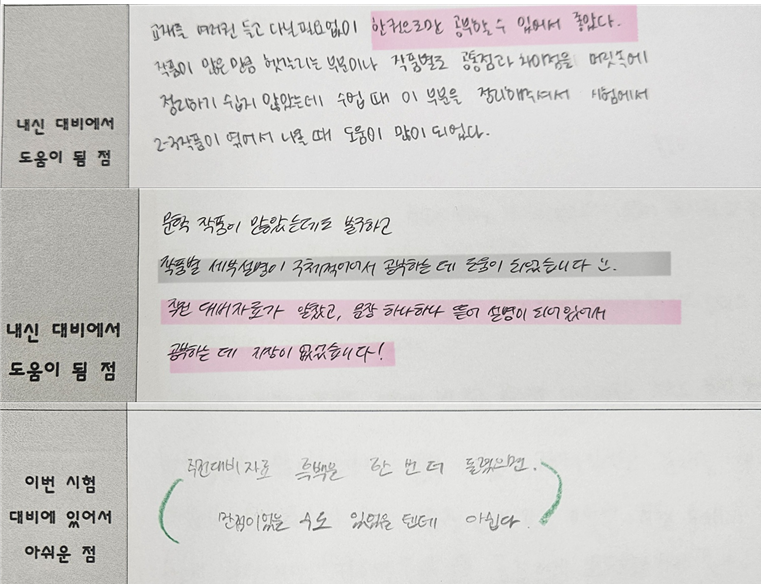 내신 대비에서
도움이 됨 점
교재를 여러권 들고 다닐 필요없이 한권으로만 공부할 수 있어서 좋았다.
작품이 많은 만큼 헷갈리는 부분이나 작품별로 공통점과 차이점을 머릿속에
정리하기 쉽지 않았는데 수업 때 이 부분을 정리해주셔서 시험에서
2-3작품이 엮어서 나올 때 도움이 많이 되었다.
내신 대비에서
도움이 됨 점
문학 작품이 많았는데도 불구하고
작품별 세부설명이 구체적이어서 공부하는 데 도움이 되었습니다 :).
직전 대비자료가 알찼고, 문장 하나하나 뜯어 설명이 되어있어서
공부하는 데 지장이 없었습니다!
이번 시험
대비에 있어서
아쉬운 점
직전대비자료 흑백을 한 번 더 돌렸으면.
만점이었을 수도 있었을 텐데 아쉽다.